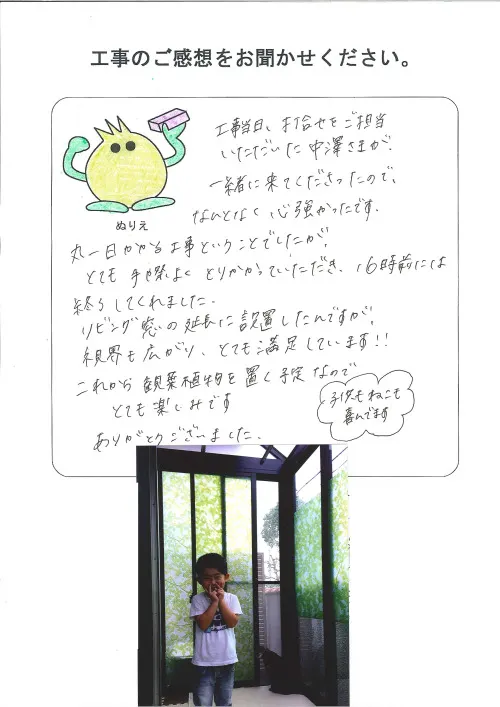 工事のご感想をお聞かせください。
ぬりえ
工事当日、打合せをご担当
いただいた中澤さまが、
一緒に来てくださったので、
なんとなく心強かったです。
丸一日かかる工事ということでしたが、
とても手際よくとりかかっていただき、16時前には
終了してくれました。
リビング窓の延長に設置したんですが、
視界も広がり、とても満足しています!!
これから観葉植物を置く予定なので
とても楽しみです
ありがとうございました。
子供もねこも
喜んでます